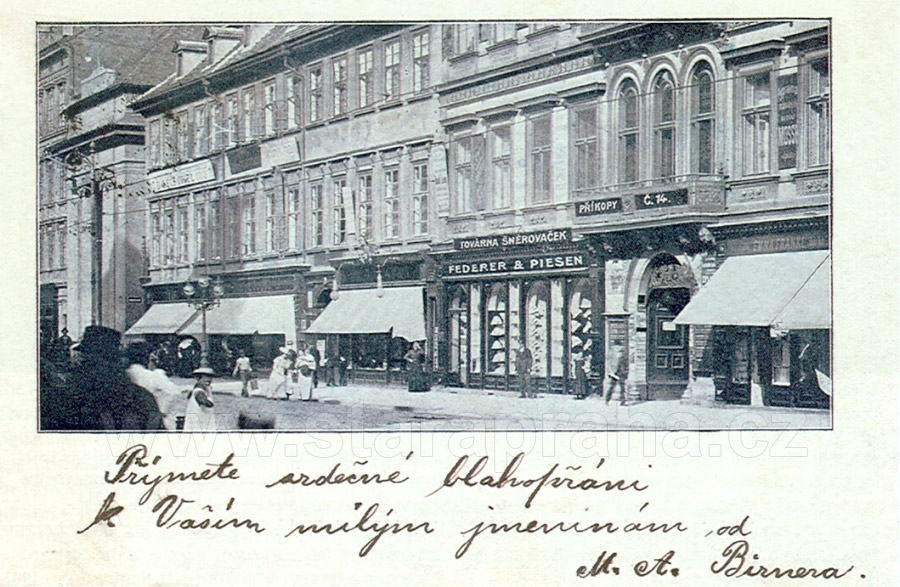 PŘÍKOPY Č. 14.
TOVÁRNA ŠNĚROVAČEK
FEDERER & PIESEN
www.starapraha.cz
Přÿmete srdečné blahopřáni
k Vašim milým jmeninám, od
M. A. Birnera.